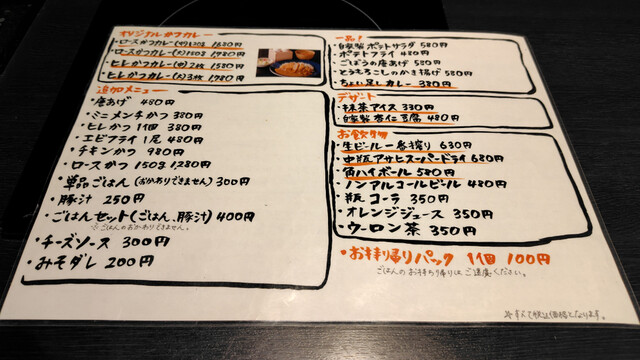 オリジナルかつカレー
・ロースかつカレー(中)120g 1680円
・ロースかつカレー(大)150g 1980円
・ヒレかつカレー(中)2枚 1580円
・ヒレかつカレー(大)3枚 1980円
追加メニュー
・唐あげ 480円
・ミニメンチかつ 380円
・ヒレかつ 1個 380円
・エビフライ 1尾 480円
・チキンかつ 980円
・ロースかつ 150g 1280円
・単品ごはん(おかわりできません) 300円
・豚汁 250円
・ごはんセット(ごはん、豚汁) 400円
※ごはんのおかわりできません。
・チーズソース 300円
・みそダレ 200円
一品!
・自家製ポテトサラダ 580円
・ポテトフライ 480円
・ごぼうの唐あげ 580円
・とうもろこしのかき揚げ 580円
・ちょい足しカレー 380円
デザート
・抹茶アイス 330円
・自家製杏仁豆腐 480円
お飲物
・生ビール一番搾り 630円
・中瓶アサヒスーパードライ 680円
・角ハイボール 580円
・ノンアルコールビール 480円
・瓶コーラ 350円
・オレンジジュース 350円
・ウーロン茶 350円
・お持ち帰りパック 1個 100円
ごはんのお持ち帰りはご遠慮ください。
※すべて税込価格となります。